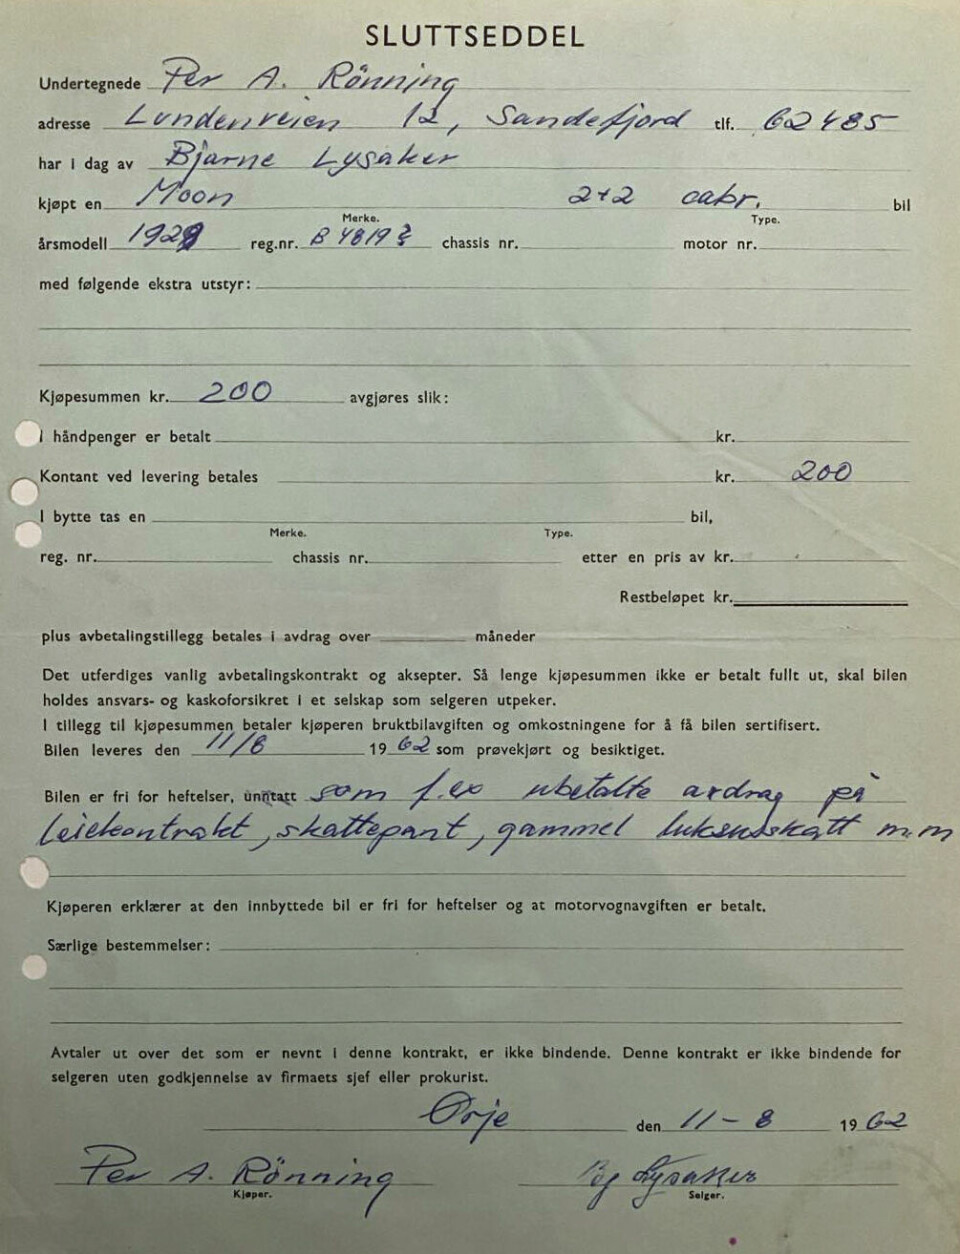 SLUTTSEDDEL
Undertegnede Per A. Rönning
adresse Lundenveien 12, Sandefjord tlf. 62485
har i dag av Bjarne Lysaker
kjøpt en Moon 2+2 cabr. bil
Merke. Type.
årsmodell 1928 reg.nr. B 4819 chassis nr. motor nr.
med følgende ekstra utstyr:
Kjøpesummen kr. 200 avgjøres slik:
I håndpenger er betalt kr.
Kontant ved levering betales kr. 200
I bytte tas en bil,
Merke. Type.
reg. nr. chassis nr. etter en pris av kr.
Restbeløpet kr.
plus avbetalingstillegg betales i avdrag over måneder
Det utferdiges vanlig avbetalingskontrakt og aksepter. Så lenge kjøpesummen ikke er betalt fullt ut, skal bilen
holdes ansvars- og kaskoforsikret i et selskap som selgeren utpeker.
I tillegg til kjøpesummen betaler kjøperen bruktbilavgiften og omkostningene for å få bilen sertifisert.
Bilen leveres den 11/8 1962 som prøvekjørt og besiktiget.
Bilen er fri for heftelser, unntatt som f.ex ubetalte avdrag på
leiekontrakt, skattepant, gammel luksusskatt m.m
Kjøperen erklærer at den innbyttede bil er fri for heftelser og at motorvognavgiften er betalt.
Særlige bestemmelser:
Avtaler ut over det som er nevnt i denne kontrakt, er ikke bindende. Denne kontrakt er ikke bindende for
selgeren uten godkjennelse av firmaets sjef eller prokurist.
Ørje den 11-8 1962
Per A. Rönning Bj Lysaker
Kjøper. Selger.